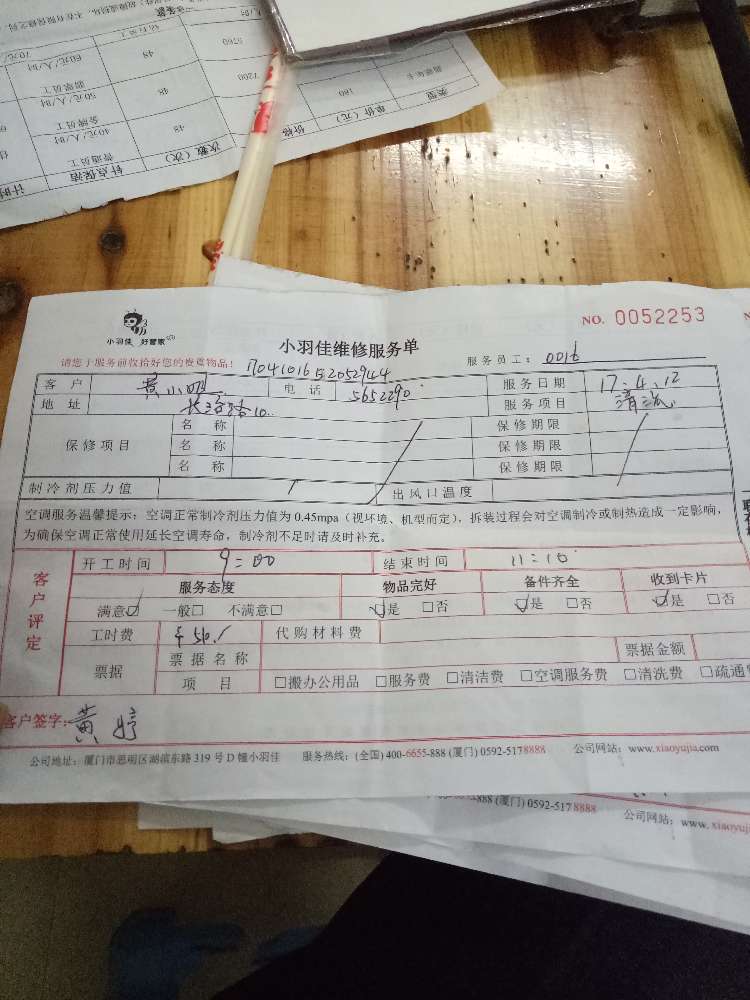 类型 单价(元) 价格 次数(次) 钟点保洁
180 7200 48 普通员工 40元/人/时
5760 48 金牌员工 50元/人/时
48 翡翠员工 60元/人/时
钻石员工 70元/
小羽佳 好管家
小羽佳维修服务单
NO. 0052253
请您于服务前收拾好您的贵重物品!
服务员工: 0016
客户 黄小姐 电话 5652290 服务日期 17.4.12
地址 服务项目 清洗
保修项目 名称 保修期限
名称 保修期限
名称 保修期限
制冷剂压力值 / 出风口温度
空调服务温馨提示:空调正常制冷剂压力值为0.45mpa(视环境、机型而定),拆装过程会对空调制冷或制热造成一定影响,
为确保空调正常使用延长空调寿命,制冷剂不足时请及时补充。
客户评定
开工时间 9:00 结束时间 11:10
服务态度 物品完好 备件齐全 收到卡片
满意☑ 一般□ 不满意□ ☑是 □否 ☑是 □否 ☑是 □否
工时费 代购材料费
票据 票据名称 票据金额
项目 □搬办公用品 □服务费 □清洁费 □空调服务费 □清洗费 □疏通
客户签字: 黄婷
公司地址:厦门市思明区湖滨东路319号D幢小羽佳 服务热线:(全国)400-6655-888 (厦门)0592-5178888 公司网站:www.xiaoyujia.com
888 (厦门)0592-5178888 公司网站:www.xiaoyuj